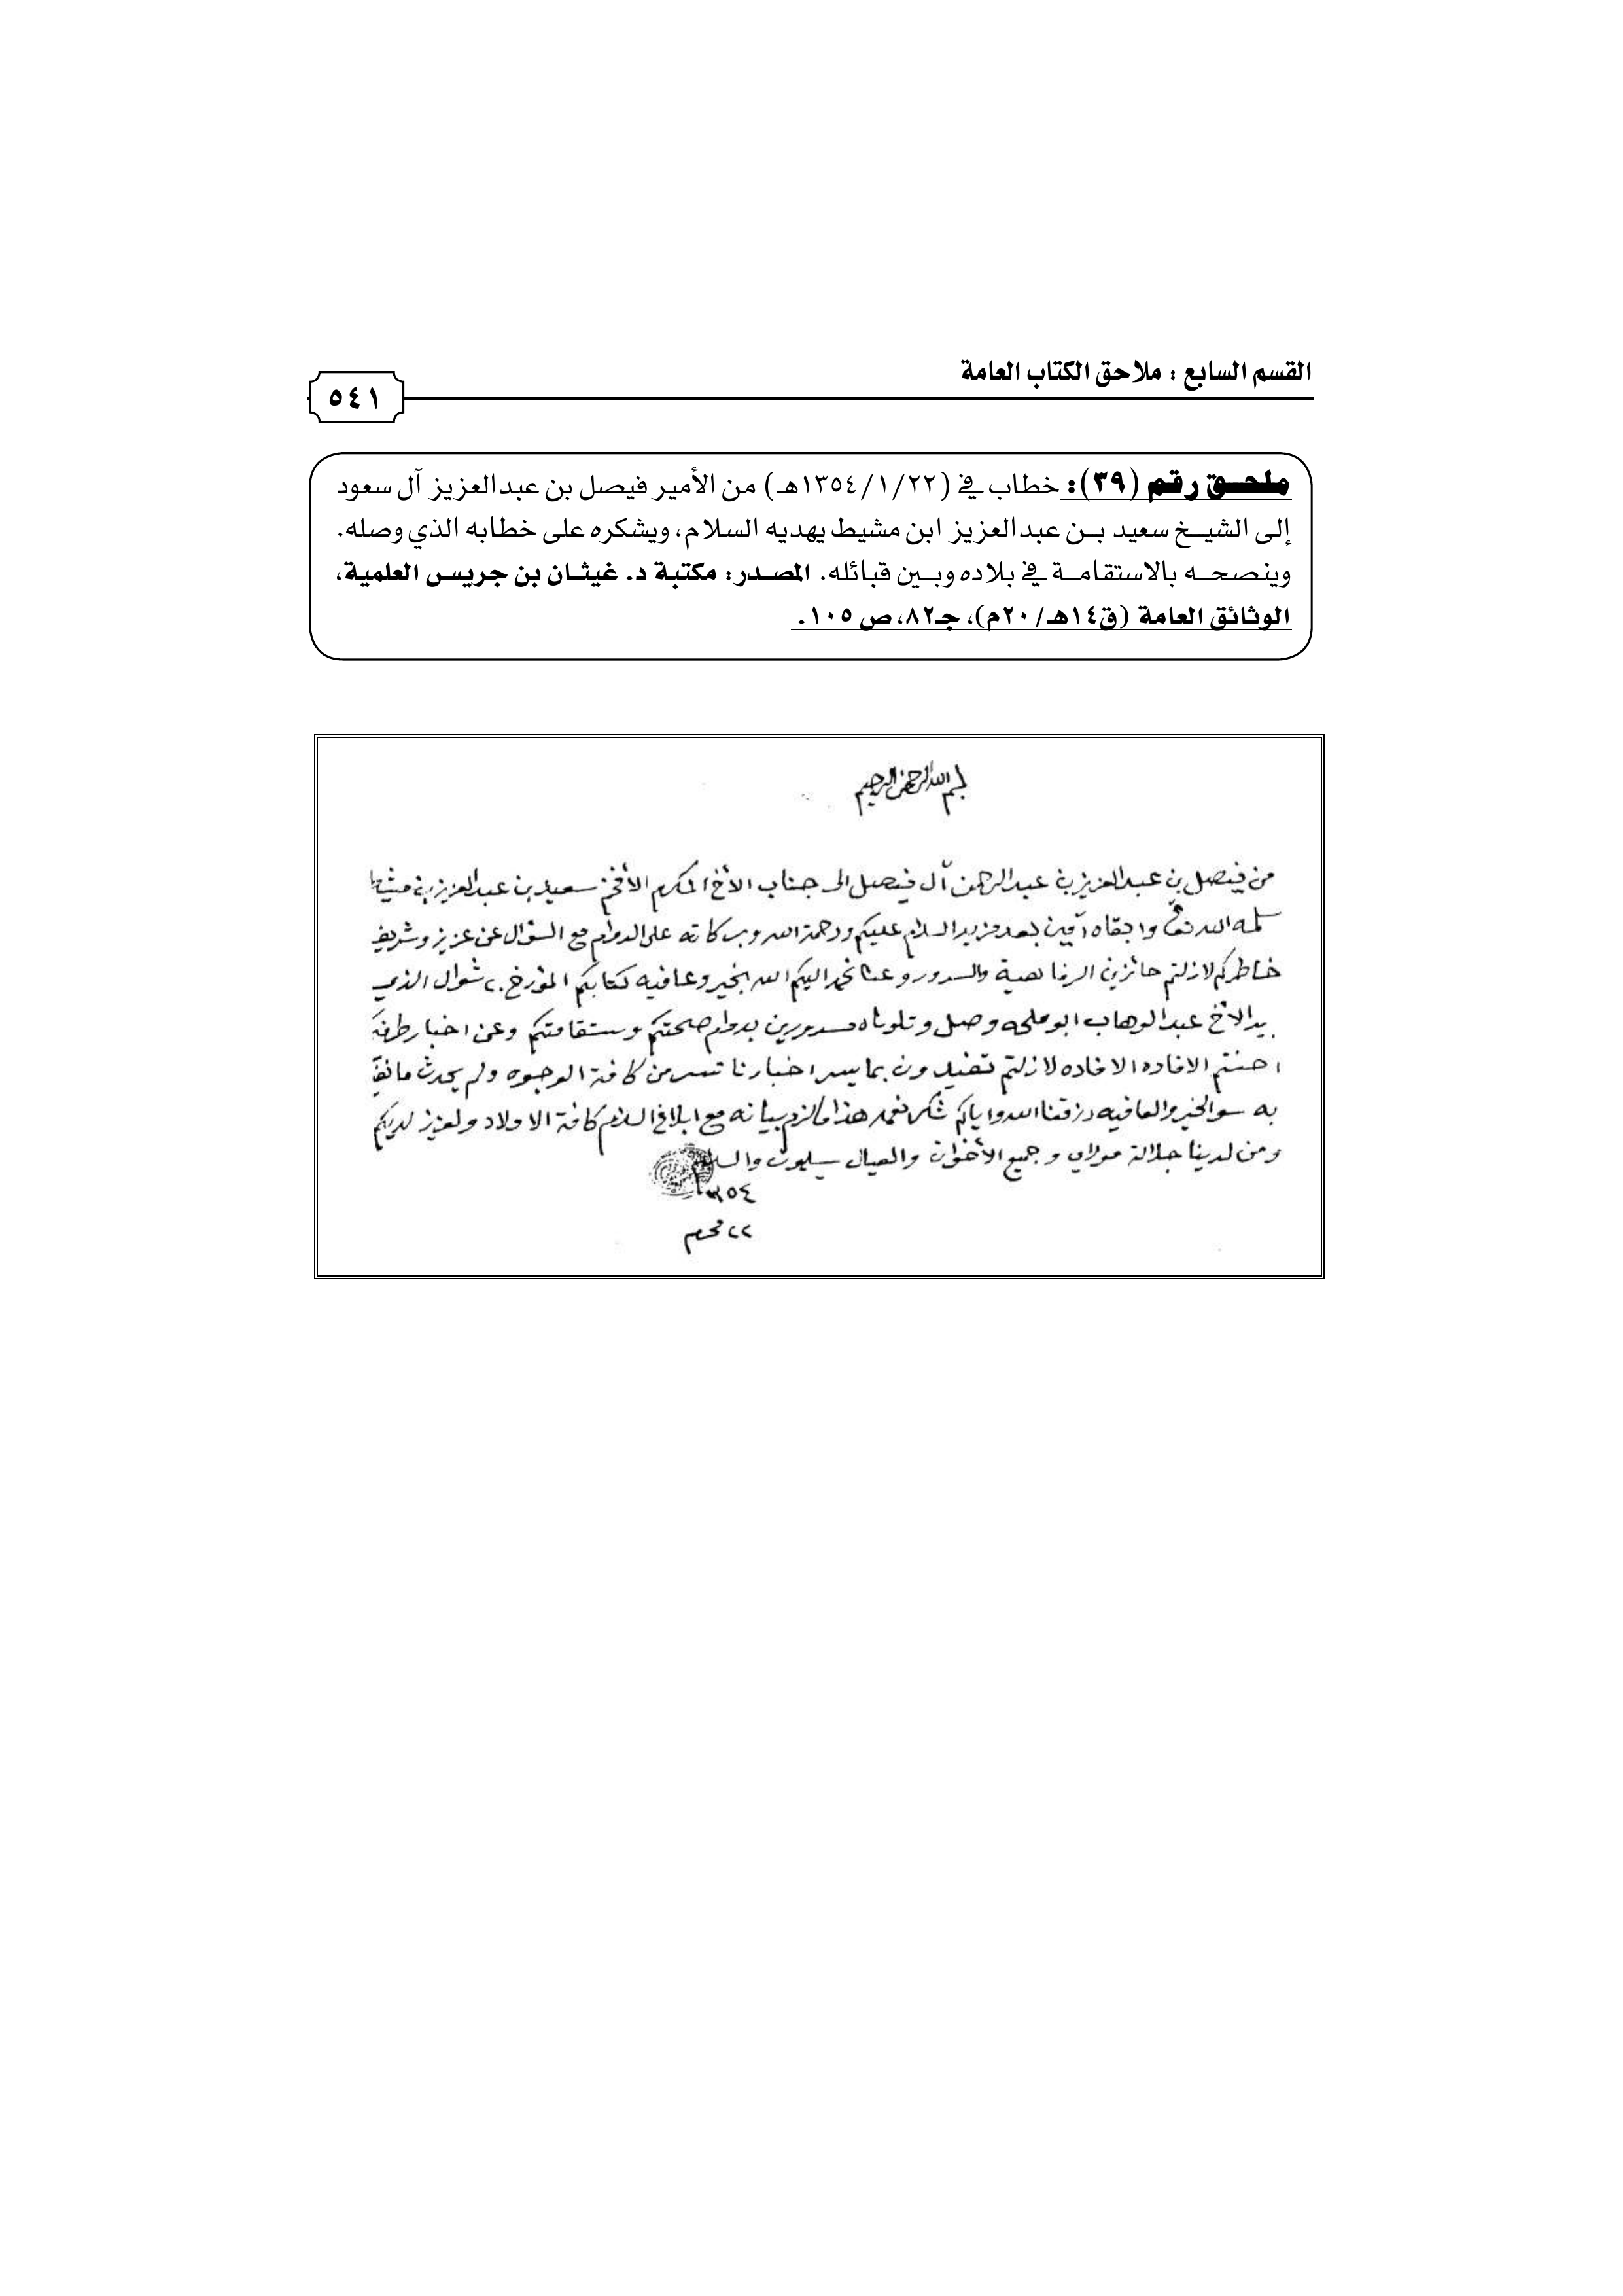 القسم السابع : ملاحق الكتاب العامة
٥٤١
ملحق رقم (٣٩): خطاب في (١٣٥٤/١/٢٢هـ) من الأمير فيصل بن عبدالعزيز آل سعود
إلى الشيخ سعيد بن عبدالعزيز ابن مشيط يهديه السلام، ويشكره على خطابه الذي وصله.
وينصحه بالاستقامة في بلاده وبين قبائله. المصدر: مكتبة د. غيثان بن جريس العلمية،
الوثائق العامة (ق١٤هـ/٢٠م)، جـ٨٢، ص ١٠٥.
بسم الله الرحمن الرحيم
من فيصل بن عبدالعزيز بن عبدالرحمن آل فيصل الى جناب الأخ المكرم الأفخم سعيد بن عبدالعزيز بن مشيط
سلمه الله تعالى وابقاه آمين بعد مزيد السلام عليكم ورحمة الله وبركاته على الدوام مع السؤال عن عزيز وشريف
خاطركم لازلتم حائزين الرفاهية والسرور وعنا نحمد اليكم الله بخير وعافيه كتابكم المؤرخ ٢٠ شوال الذي
بيد الأخ عبدالوهاب ابو ملحه وصل وتلوناه مسرورين بدوام صحتكم وستقامتكم وعن اخبار طرفكم
احسنتم الافاده الافاده لازلتم تفيدون بما يسر اخبارنا تسر من كافة الوجوه ولم يحدث ما
به سوا الخير والعافيه رزقنا الله واياكم شكر نعمه هذا مالزم بيانه مع ابلاغ السلام كافة الاولاد ولعزيز لديكم
ومن لدينا جلالة مولاي وجميع الأخوان والعيال يسلمون والسلام
١٣٥٤
٢٢ محرم